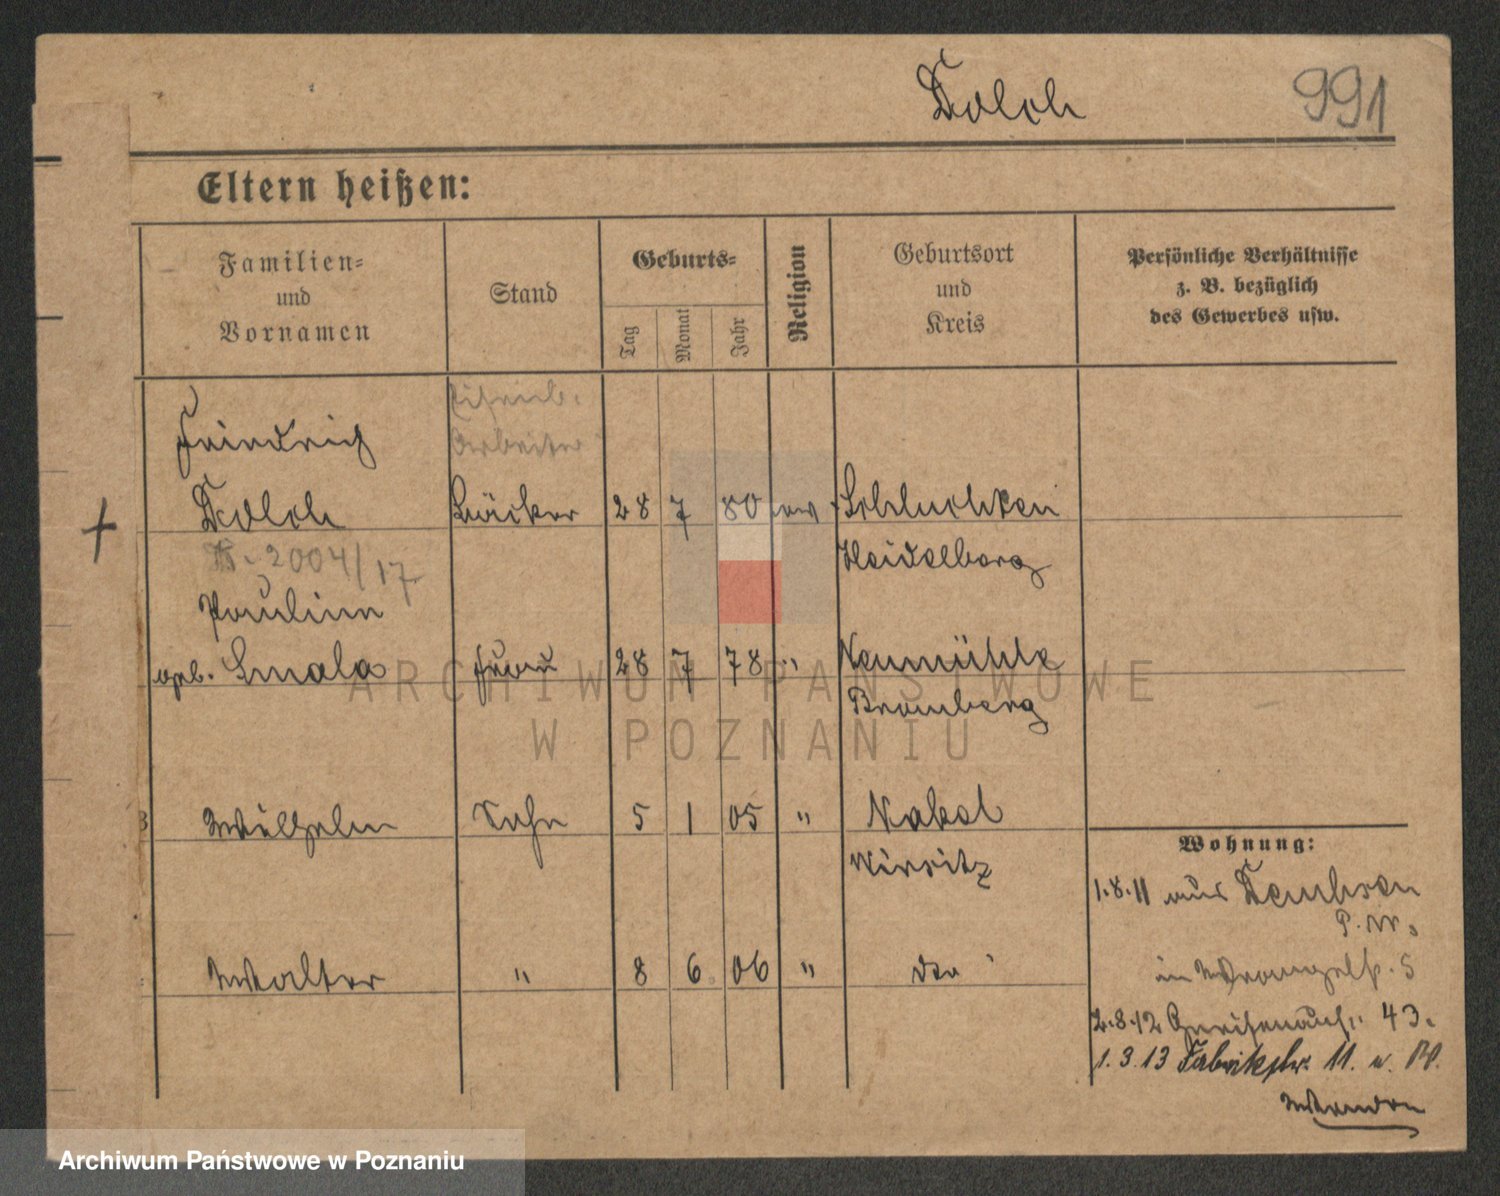 Dolch 991
Eltern heißen:
Familien-
und
Vornamen
Stand
Geburts-
Tag
Monat
Jahr
Religion
Geburtsort
und
Kreis
Persönliche Verhältnisse
z. B. bezüglich
des Gewerbes usw.
Friedrich
Arbeiter
Dolch Bäcker 28 7 80 ev Schluchtern
2004/17 Heidelberg
Pauline
geb. Smala Frau 28 7 78 " Neumühle
Bromberg
Wilhelm Sohn 5 1 05 " Nakel
Wirsitz
Wohnung:
1.8.11 aus Dembsen
P. W.
Walter " 8 6 06 " do
in Wrangelstr. 5
2.8.12 Gneisenaustr. 43.
1.3.13 Fabrikstr. 11.
ARCHIWUM PAŃSTWOWE
W POZNANIU
Archiwum Państwowe w Poznaniu